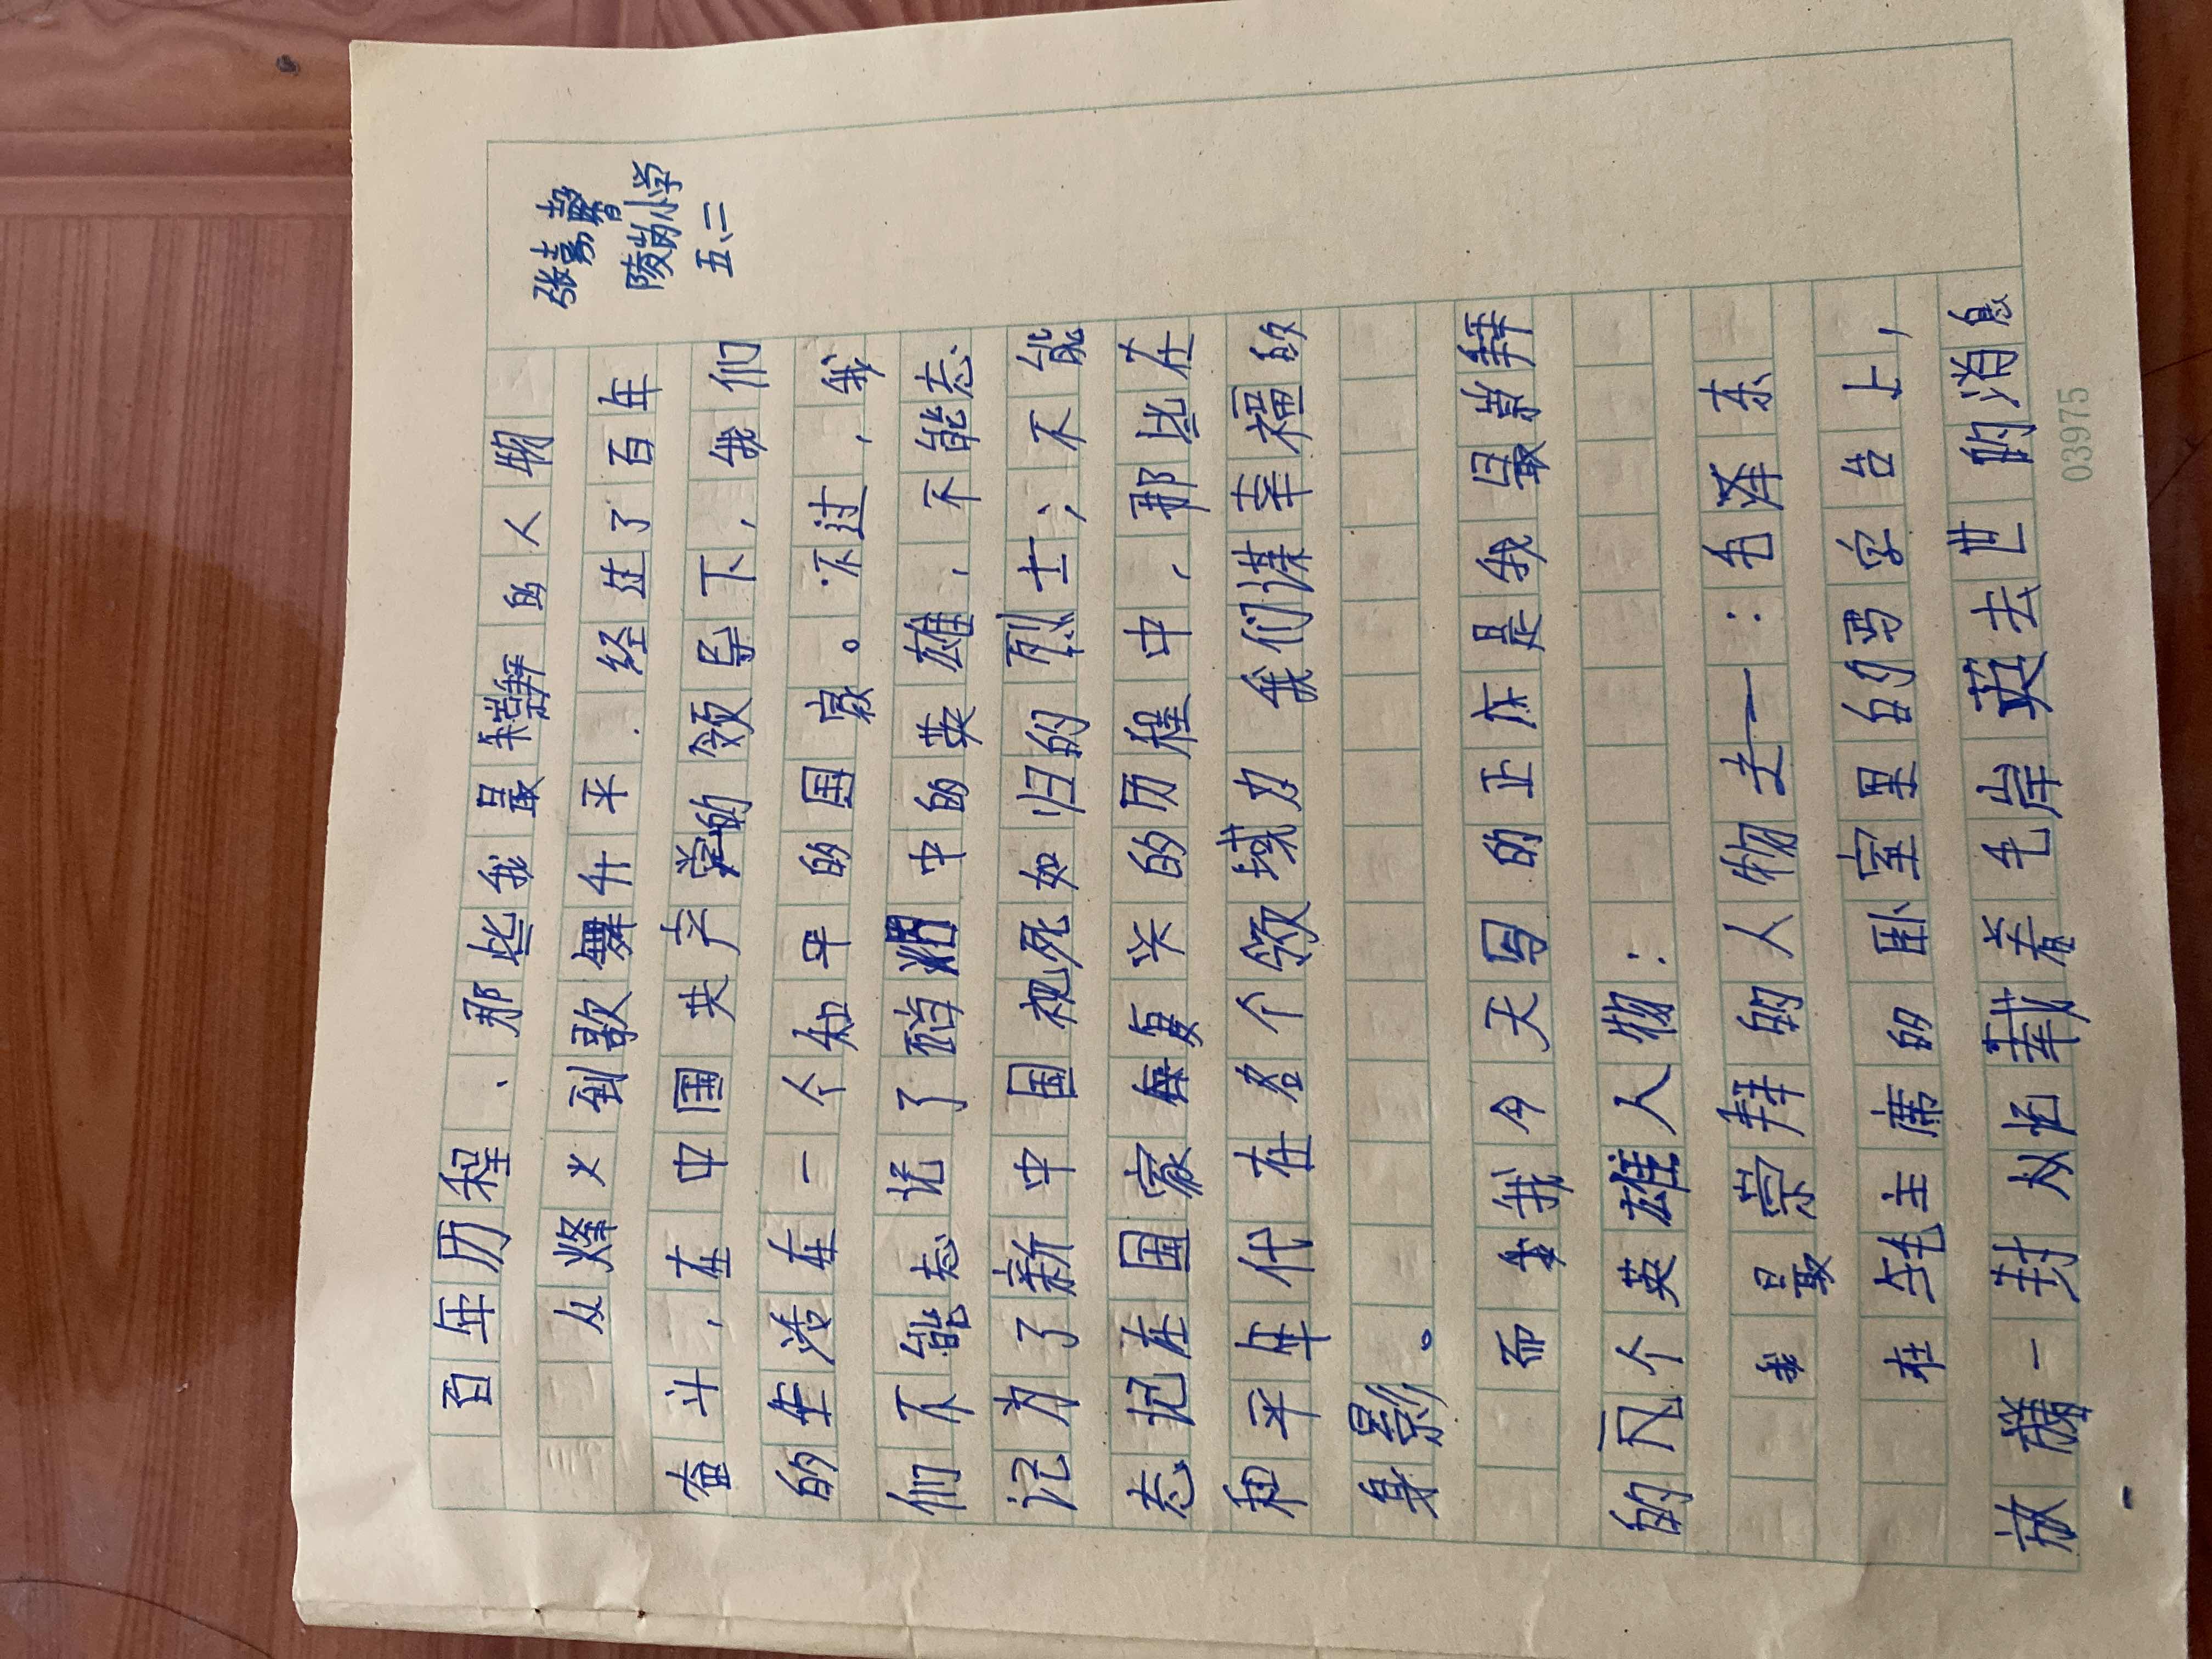 张嘉馨
陵岗小学
五、二
百年历程、那些我最崇拜的人物
从烽火到歌舞升平．经过了百年
奋斗，在中国共产党的领导下，我们
的生活在一个和平的国家。不过，我
们不能忘记了硝烟中的英雄，不能忘
记为了新中国视死如归的烈士，不能
忘记在国家每复兴的历程中，那些在
和平年代在各个领域为我们谋幸福的
身影。
而我今天写的正在是我最崇拜
的几个英雄人物：
我最崇拜的人物之一：毛泽东
在毛主席的卧室里的写字台上，
放藏一封从怕载着毛岸英去世的消息
03975